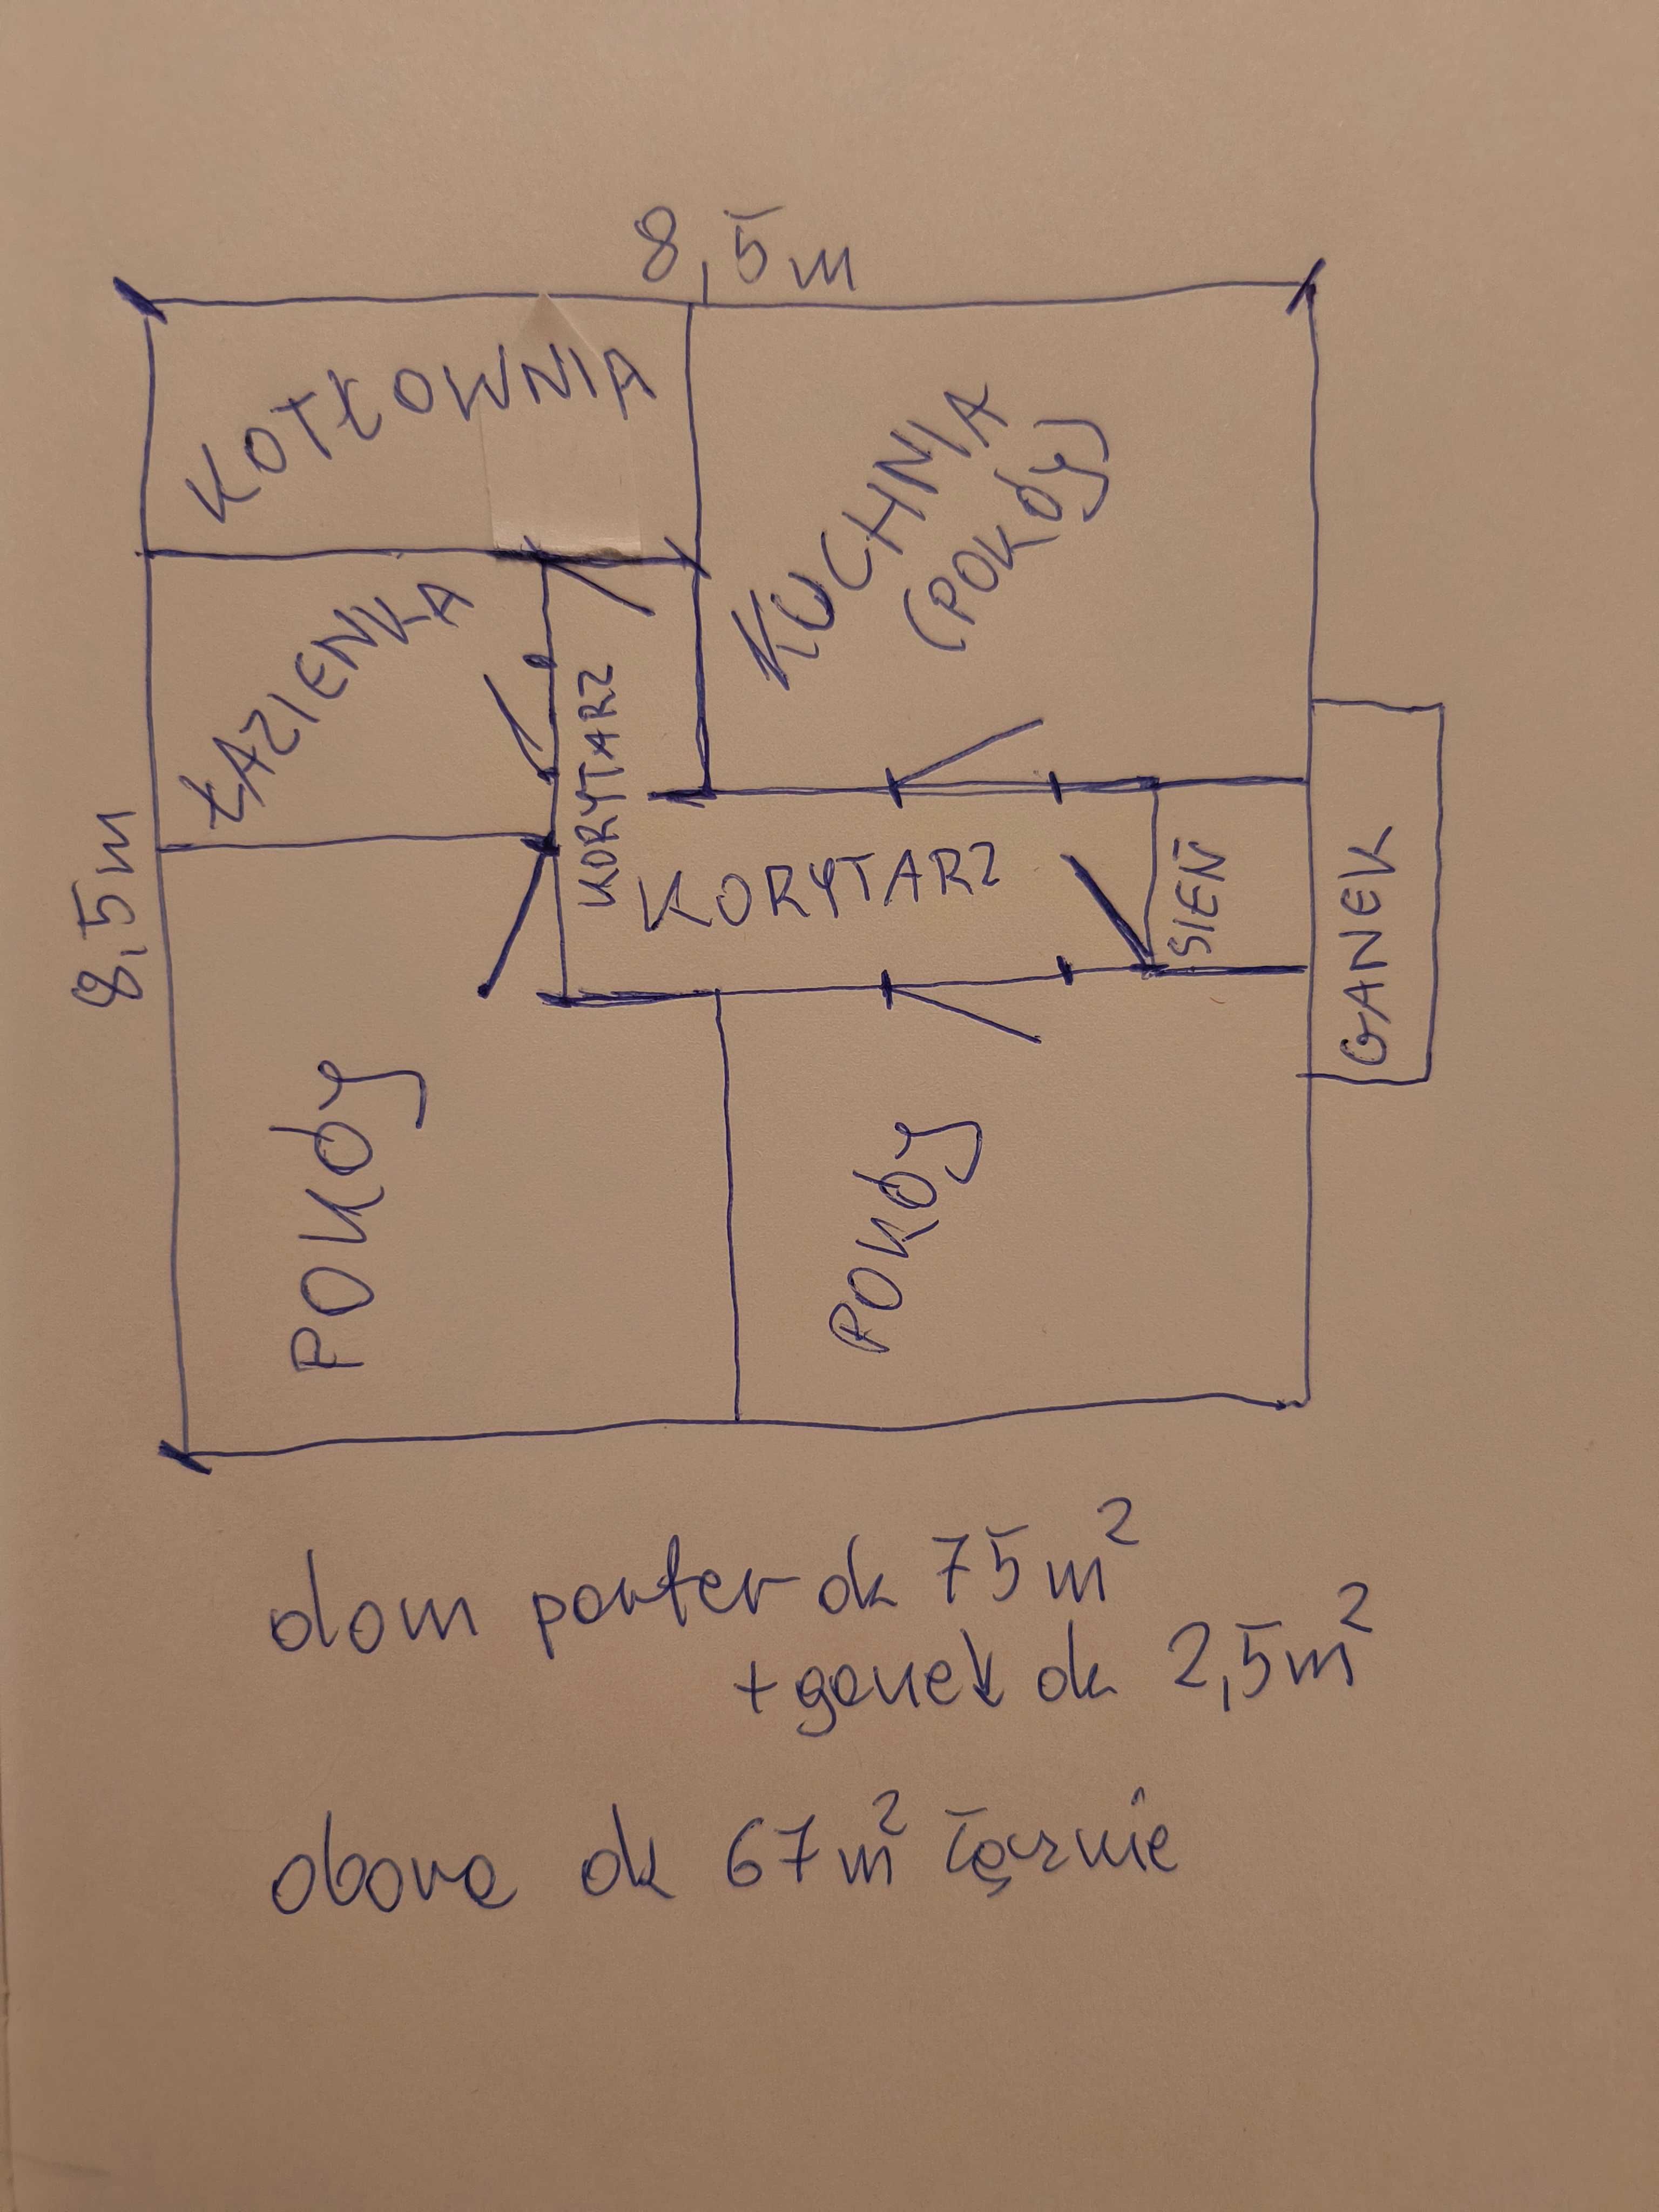 8,5m
KOTŁOWNIA
KUCHNIA
(POKÓJ)
ŁAZIENKA
KORYTARZ
KORYTARZ
SIEŃ
GANEK
8,5m
POKÓJ
POKÓJ
dom parter ok 75m²
+ganek ok 2,5m²
obora ok 67m² łącznie